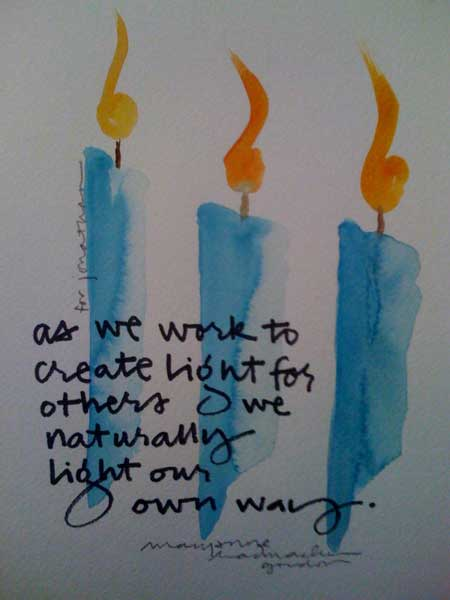 for jonathan
as we work to
create light for
others we
naturally
light our
own way.
maryanne
radmacher
gordon